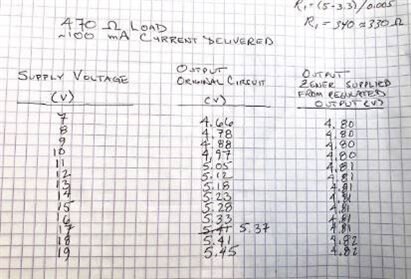 R₁ = (5-3.3)/0.005
R₁ = 340 ≈ 330 Ω
470 Ω LOAD
~100 mA CURRENT DELIVERED
SUPPLY VOLTAGE (V)
OUTPUT ORIGINAL CIRCUIT (V)
OUTPUT ZENER SUPPLIED FROM REGULATED OUTPUT (V)
7 4.66 4.80
8 4.78 4.80
9 4.88 4.80
10 4.97 4.80
11 5.05 4.81
12 5.12 4.81
13 5.18 4.81
14 5.23 4.81
15 5.28 4.81
16 5.33 4.81
17 5.41 5.37 4.81
18 5.41 4.82
19 5.45 4.82